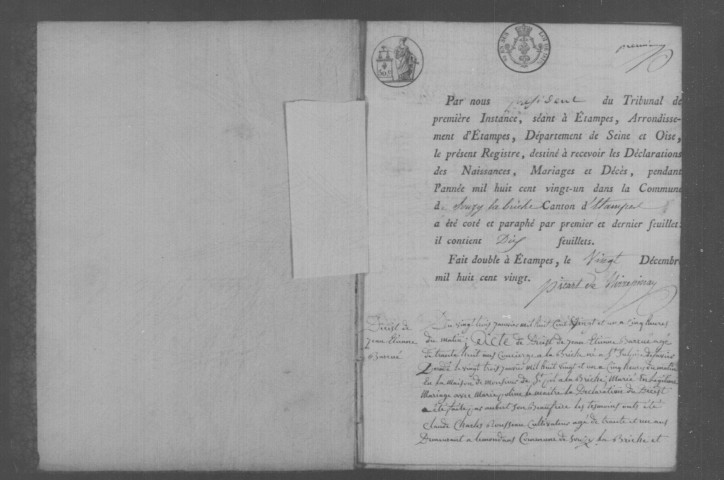 premier
Par nous président du Tribunal de
première Instance, séant à Étampes, Arrondisse-
ment d'Étampes, Département de Seine et Oise,
le présent Registre, destiné à recevoir les Déclarations
des Naissances, Mariages et Décès, pendant
l'année mil huit cent vingt-un dans la Commune
d. Souzy la briche Canton d'Etampes
a été coté et paraphé par premier et dernier feuillet:
il contient Dix feuillets.
Fait double à Étampes, le Vingt Décembre
mil huit cent vingt.
Décès de
jean Etienne
Du vingt trois janvier mil huit Cent vingt et un a Cinq heures
du matin acte de Décès de jean Etienne agé
de trente huit ans Concierge a la Briche né a St
le vingt trois janvier mil huit vingt et un a Cinq heures du matin
En la Maison de monsieur de St a la Briche Marié
Mariage avec Marie la Declaration du Décès
a été faite par son Beaufrere les temoins ont été
Claude Charles Rousseau Cultivateur agé de trente et un ans
Demeurant a Commune de Souzy la Briche et